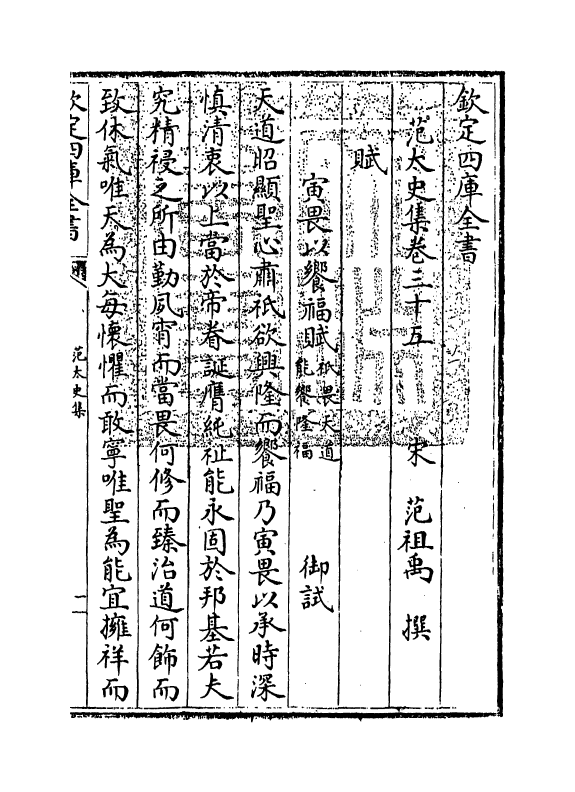 欽定四庫全書
范太史集卷三十五　宋　范祖禹　撰
賦
寅畏以饗福賦祇畏天道能饗隆福　御試
天道昭顯聖心肅祇欲興隆而饗福乃寅畏以承時深
慎清衷以上當於帝眷誕膺純祉能永固於邦基若夫
究精祲之所由勤夙宵而當畏何修而臻治道何飾而
致休氣唯天為大每懷懼而敢寧唯聖為能宜擁祥而
欽定四庫全書
范太史集
一